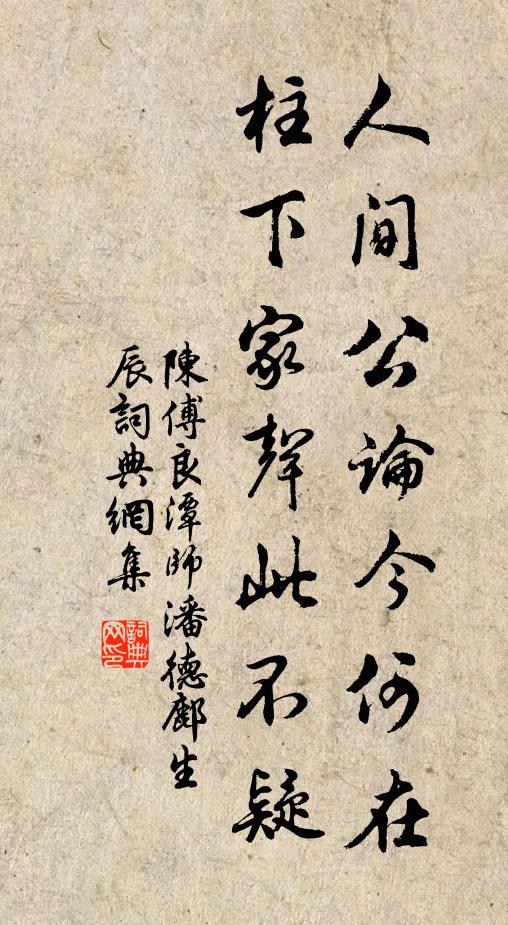 人间公論今何在
柱下家聲此不疑
陳傅良潭師潘德鄜生
辰詞典網集
詞典网印